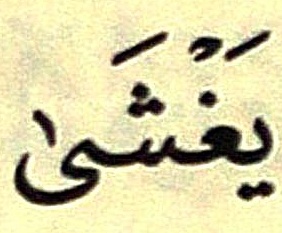 يَغْشَىٰ